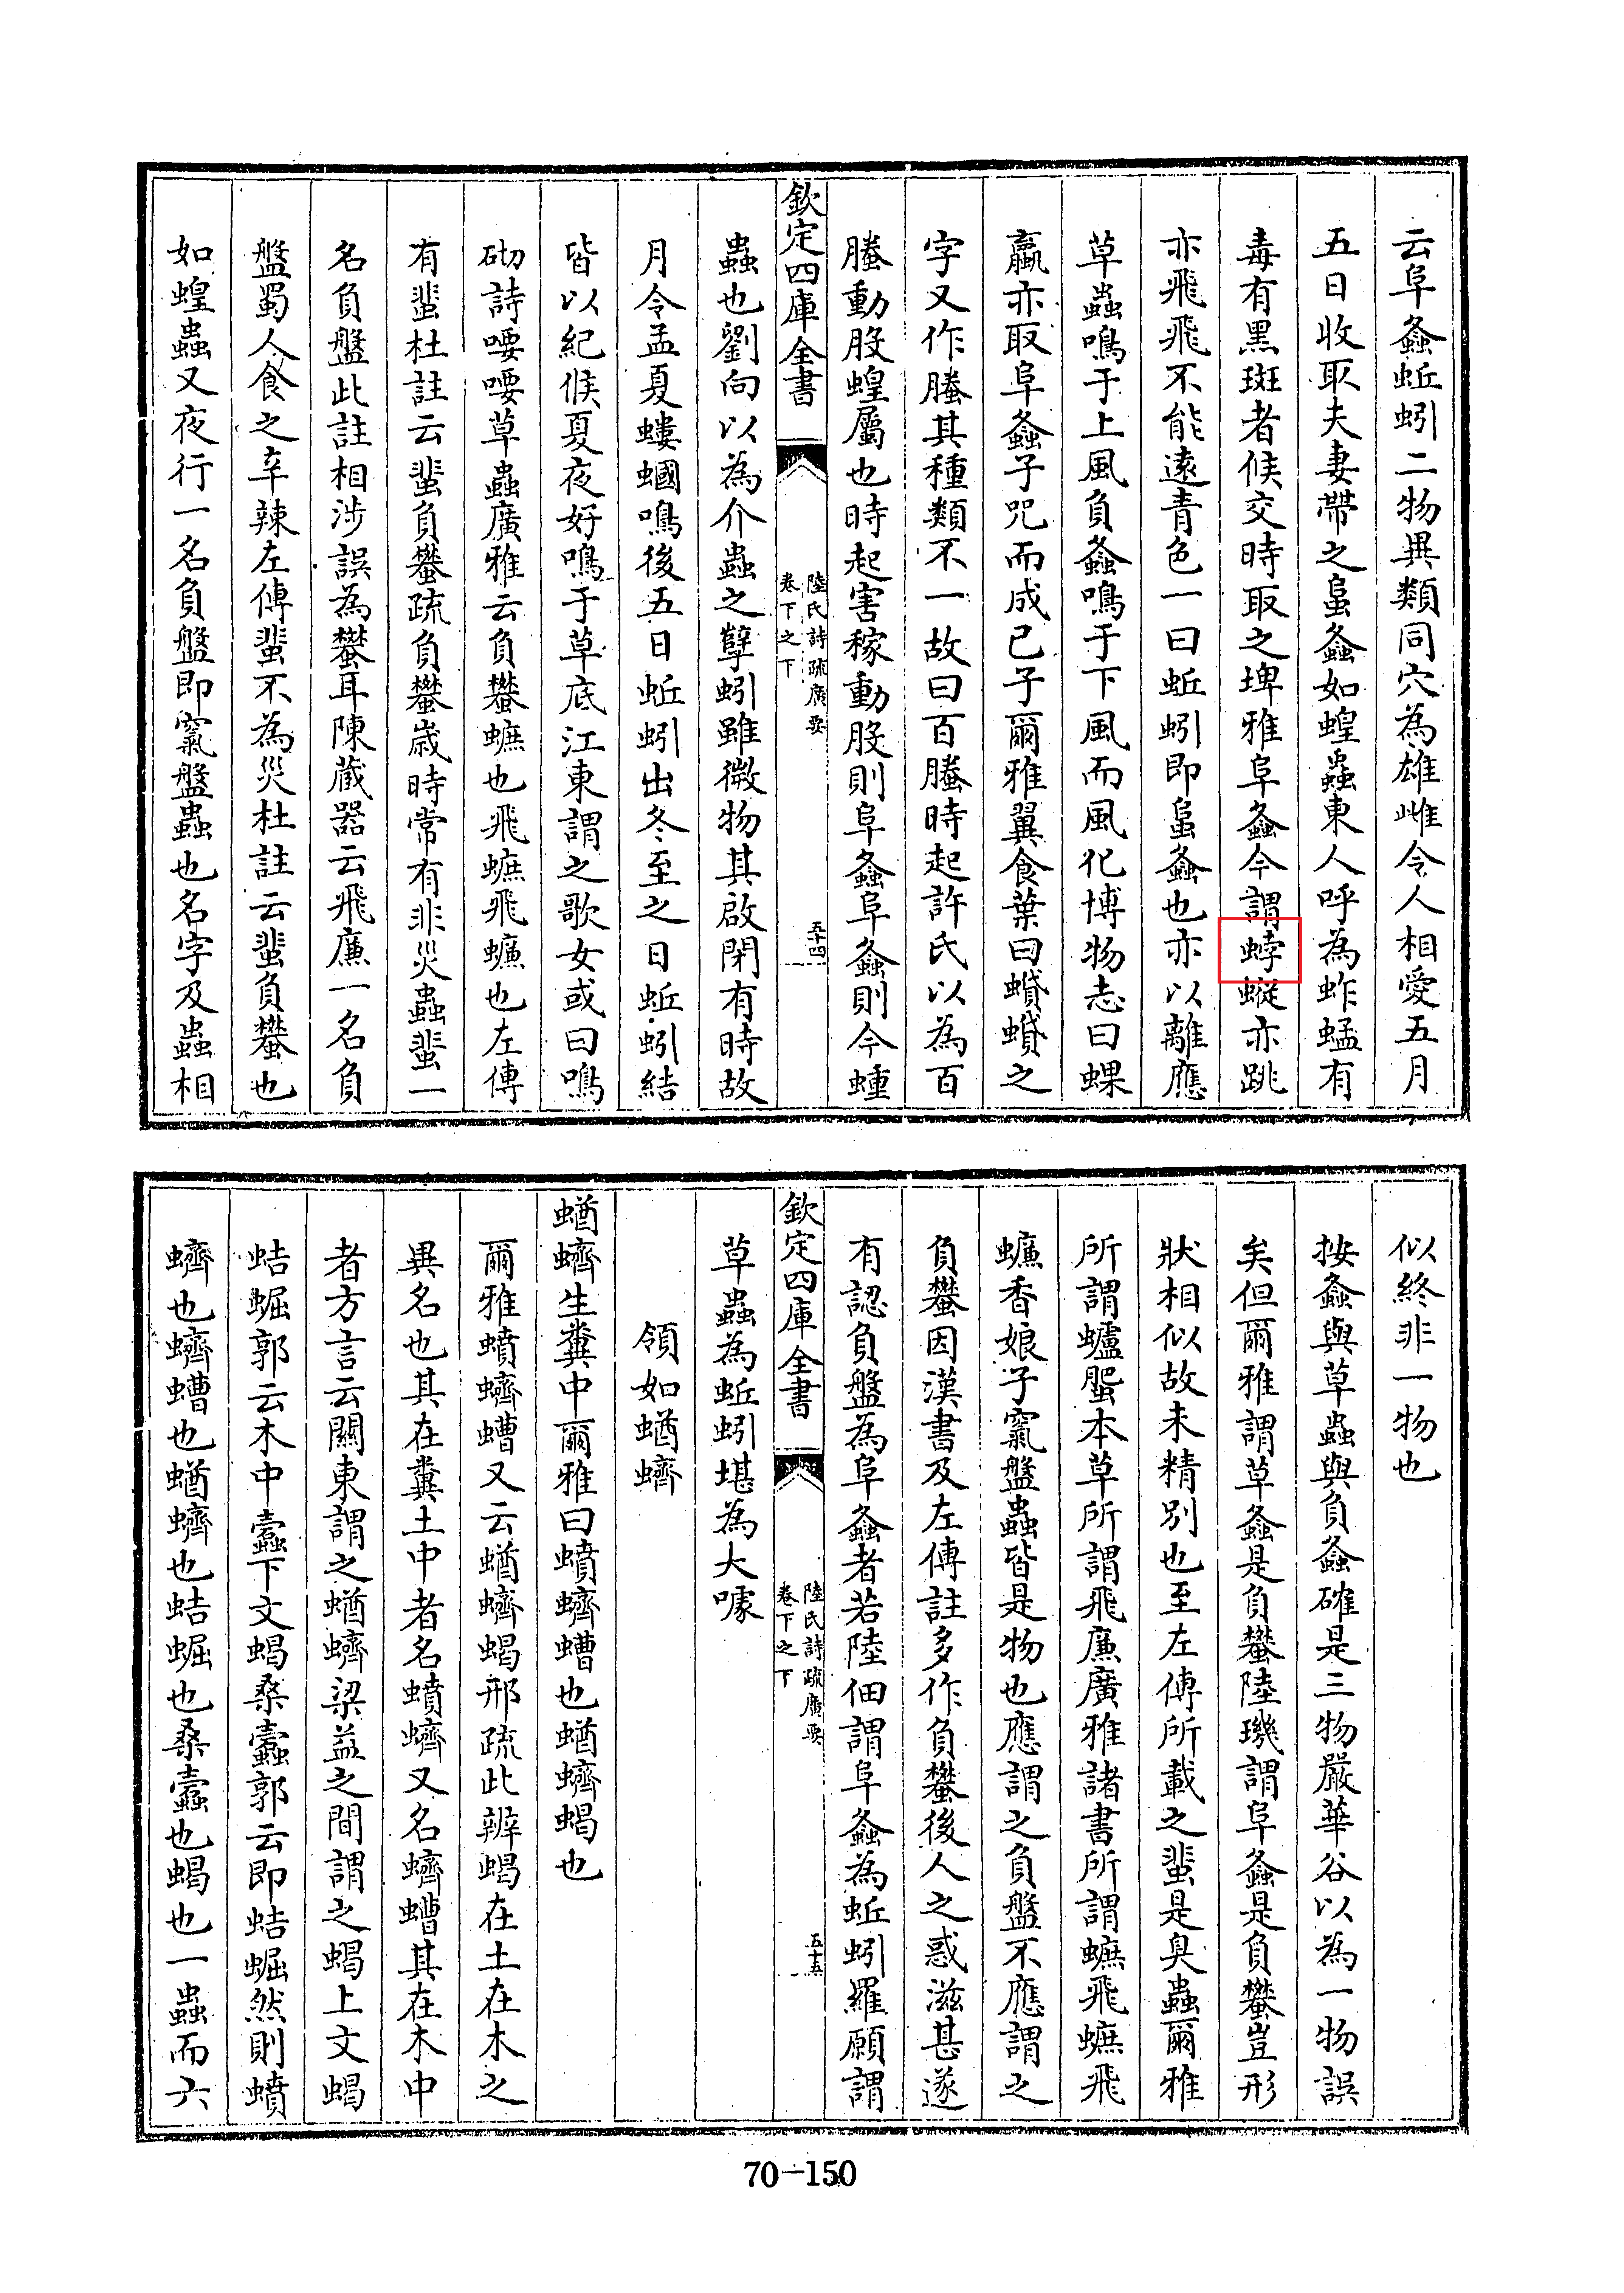 云阜螽蚯蚓二物異類同穴為雄雌令人相愛五月
五日收取夫妻帶之䖬螽如蝗蟲東人呼為蚱蜢有
毒有黒斑者候交時取之埤雅阜螽今謂蛶䗥亦跳
亦飛飛不能逺青色一曰蚯蚓即䖬螽也亦以離應
草蟲鳴于上風負螽鳴于下風而風化博物志曰蜾
蠃亦取阜螽子咒而成已子爾雅翼食葉曰蟘蟘之
字又作螣其種類不一故曰百螣時起許氏以為百
螣動股蝗屬也時起害稼動股則阜螽阜螽則今蝩
欽定四庫全書
陸氏詩疏廣要
卷下之下
五十四
蟲也劉向以為介蟲之孽蚓雖微物其啟閉有時故
月令孟夏螻蟈鳴後五日蚯蚓出冬至之日蚯蚓結
皆以紀候夏夜好鳴于草底江東謂之歌女或曰鳴
砌詩喓喓草蟲廣雅云負蠜蟅也飛蟅飛蠊也左傳
有蜚杜註云蜚負蠜疏負蠜歲時常有非災蟲蜚一
名負盤此註相涉誤為蠜耳陳藏器云飛廉一名負
盤蜀人食之辛辣左傳蜚不為災杜註云蜚負蠜也
如蝗蟲又夜行一名負盤即䆰盤蟲也名字及蟲相
似終非一物也
按螽與草蟲與負螽確是三物嚴華谷以為一物誤
矣但爾雅謂草螽是負蠜陸璣謂阜螽是負蠜豈形
狀相似故未精別也至左傳所載之蜚是臭蟲爾雅
所謂蠦蜰本草所謂飛廉廣雅諸書所謂蟅飛蟅飛
蠊香娘子䆰盤蟲皆是物也應謂之負盤不應謂之
負蠜因漢書及左傳註多作負蠜後人之惑滋甚遂
有認負盤為阜螽者若陸佃謂阜螽為蚯蚓羅願謂
欽定四庫全書
陸氏詩疏廣要
卷下之下
五十五
草蟲為蚯蚓堪為大噱
領如蝤蠐
蝤蠐生糞中爾雅曰蟦蠐螬也蝤蠐蝎也
爾雅蟦蠐螬又云蝤蠐蝎邢疏此辨蝎在土在木之
異名也其在糞土中者名蟦蠐又名蠐螬其在木中
者方言云關東謂之蝤蠐梁益之間謂之蝎上文蝎
蛣𧌑郭云木中蠹下文蝎桑蠹郭云即蛣𧌑然則蟦
蠐也蠐螬也蝤蠐也蛣𧌑也桑蠹也蝎也一蟲而六
70-150